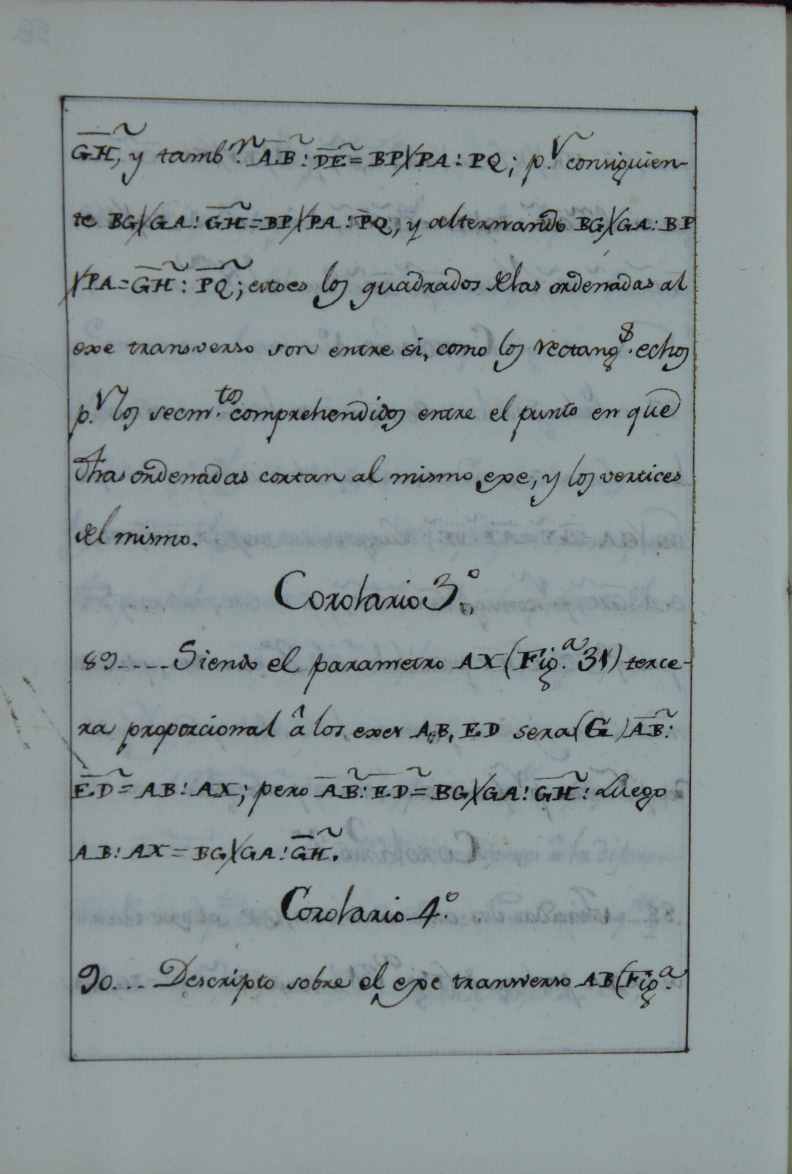 G͞H², y tamb.ⁿ A͞B²: D͞E² = BP╳PA: PQ; p.ʳ consiguien-
te BG╳GA: G͞H² = BP╳PA: P͞Q², y alternando BG╳GA: BP
╳PA = G͞H²: P͞Q²; esto es los quadrados delas ordenadas al
exe transverso son entre si, como los rectang.ˢ echos
p.ʳ los secm.ᵗᵒˢ comprehendidos entre el punto en que
dhas ordenadas cortan al mismo exe, y los vertices
del mismo.
Corolario 3.º
89.... Siendo el parametro AX (Fig.ª 31) terce-
ra proporcional â los exes AB, ED sera (G) A͞B²:
E͞D² = AB: AX; pero A͞B²: E͞D² = BG╳GA: G͞H²: Luego
AB: AX = BG╳GA: G͞H².
Corolario 4.º
90... Descripto sobre el exe transverso AB (Fig.ª